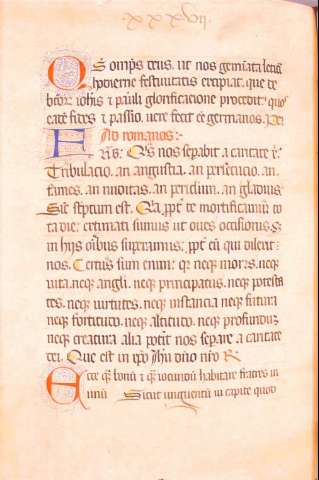 Omps deus. ut nos gemīata leticia
hodierne festivitatis excipiat. que de
bt̄or̄ iohīs & pauli glorificatione procedit. quos
eadē fides & passio. vere fecit eē germanos. Per
Ad romanos:-
FRēs: Quis nos sepabit a caritate xp̄i.
Tribulacio. an angustia. an persecucio. an
fames. an nuditas. an periculum. an gladius.
Sic̄ sc̄ptum est. Qia ppt̄ te mortificamur to
ta die: extimati sumus ut oues occisionis.
in hijs oībus superamus. ppt̄ eū qui dilexit
nos. Certus sum enim: qr neq mors. neq
uita. neq angli. neq principatus. neq potesta
tes. neq uirtutes. neq instancia neq futura
neq fortitudo. neq altitudo. neq profunduz
neq creatura alia potīt nos separe a caritate
dei. Que est in xpō ihū dn̄o nr̄o R.
Ecce qz bonū & qz iocundū habitare fratres in
unū Sicut unguentū in capite quod